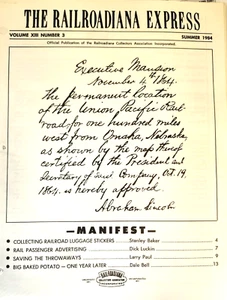 THE RAILROADIANA EXPRESS
VOLUME XIII NUMBER 3 SUMMER 1984
Official Publication of the Railroadiana Collectors Association, Incorporated.
Executive Mansion
November 4th 1864.
The permanent location
of the Union Pacific Rail-
road, for one hundred miles
west from Omaha, Nebraska,
as shown by the map thereof
certified by the President and
Secretary of said Company, Oct. 19,
1864, is hereby approved
Abraham Lincoln
—MANIFEST—
● COLLECTING RAILROAD LUGGAGE STICKERS Stanley Baker 4
● RAIL PASSENGER ADVERTISING Dick Luckin 7
● SAVING THE THROWAWAYS Larry Paul 9
● BIG BAKED POTATO — ONE YEAR LATER Dale Bell 13
RAILROADIANA